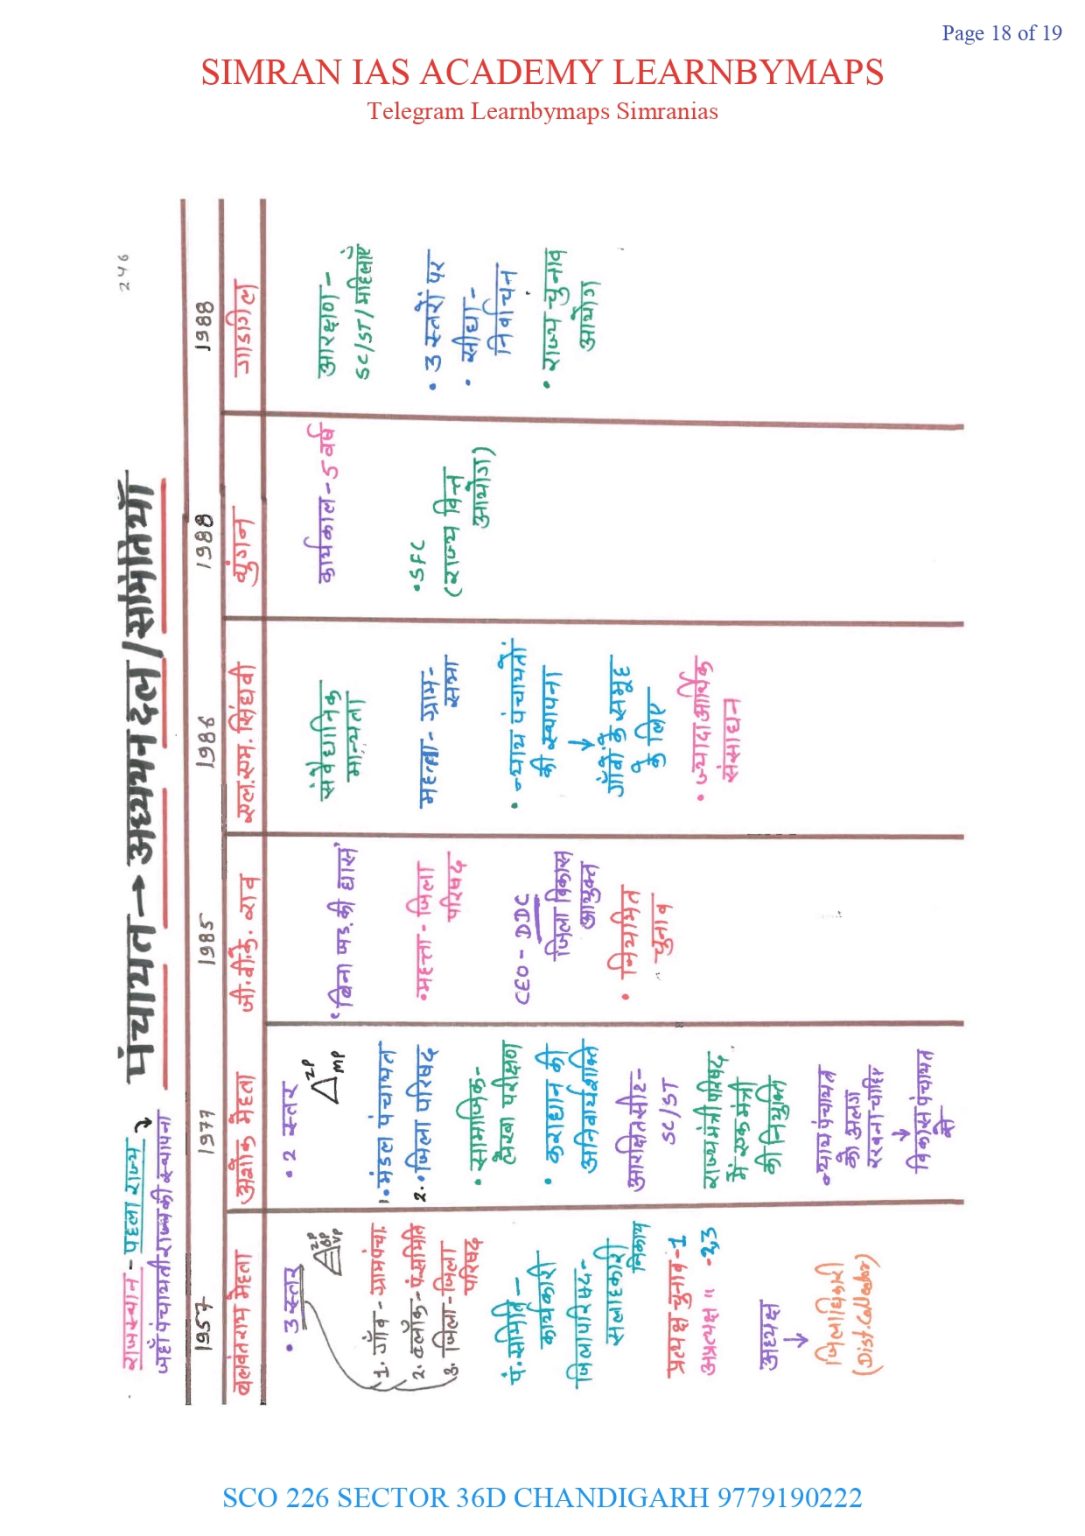 Page 18 of 19
SIMRAN IAS ACADEMY LEARNBYMAPS
Telegram Learnbymaps Simranias
246
पंचायत → अध्ययन दल / समितियाँ
राजस्थान - पहला राज्य
जहाँ पंचायती राज्य की स्थापना
1957
बलवंतराय मेहता
• 3 स्तर
ZP
BP
VP
1. गाँव - ग्राम पंचा.
2. ब्लॉक - पं. समिति
3. जिला - जिला
परिषद
पं. समिति -
कार्यकारी
जिला परिषद -
सलाहकारी
निकाय
प्रत्यक्ष चुनाव - 1
अप्रत्यक्ष " - 2,3
अध्यक्ष
↓
जिलाधिकारी
(Dist. Collector)
1977
अशोक मेहता
• 2 स्तर
ZP
MP
1. मंडल पंचायत
2. जिला परिषद
• सामाजिक -
लेखा परीक्षण
• कराधान की
अनिवार्य शक्ति
आरक्षित सीट -
SC/ST
राज्य मंत्री परिषद
में एक मंत्री
की नियुक्ति
• न्याय पंचायत
को अलग
रखना चाहिए
↓
विकास पंचायत
से
1985
जी. वी. के. राव
'बिना जड़ की घास'
• महत्ता - जिला
परिषद
CEO - DDC
जिला विकास
आयुक्त
• नियमित
चुनाव
1986
एल. एम. सिंघवी
संवैधानिक
मान्यता
महत्ता - ग्राम -
सभा
• न्याय पंचायतों
की स्थापना
↓
गाँवों के समूह
के लिए
• ज्यादा आर्थिक
संसाधन
1988
थुंगन
कार्यकाल - 5 वर्ष
• SFC
(राज्य वित्त
आयोग)
1988
गाडगिल
आरक्षण -
SC/ST/महिलाएँ
• 3 स्तरों पर
• सीधा -
निर्वाचन
• राज्य चुनाव
आयोग
SCO 226 SECTOR 36D CHANDIGARH 9779190222